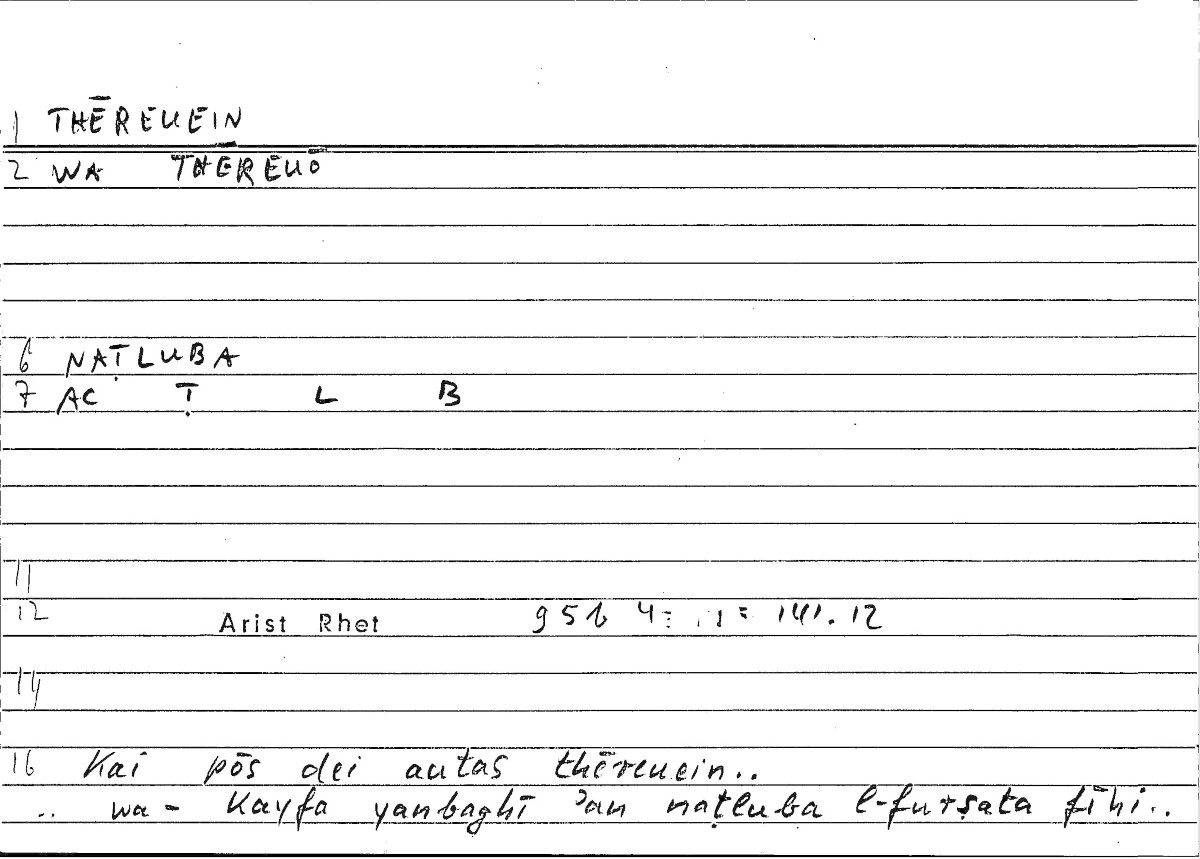 1 THĒREUEIN
2 WA THĒREUŌ
6 NAṬLUBA
7 AC Ṭ L B
11
12 Arist Rhet 95b 4 = 141.12
14
16 Kai pōs dei autas thēreuein..
.. wa- Kayfa yanbaghī ʾan naṭluba l-furṣata fīhi..